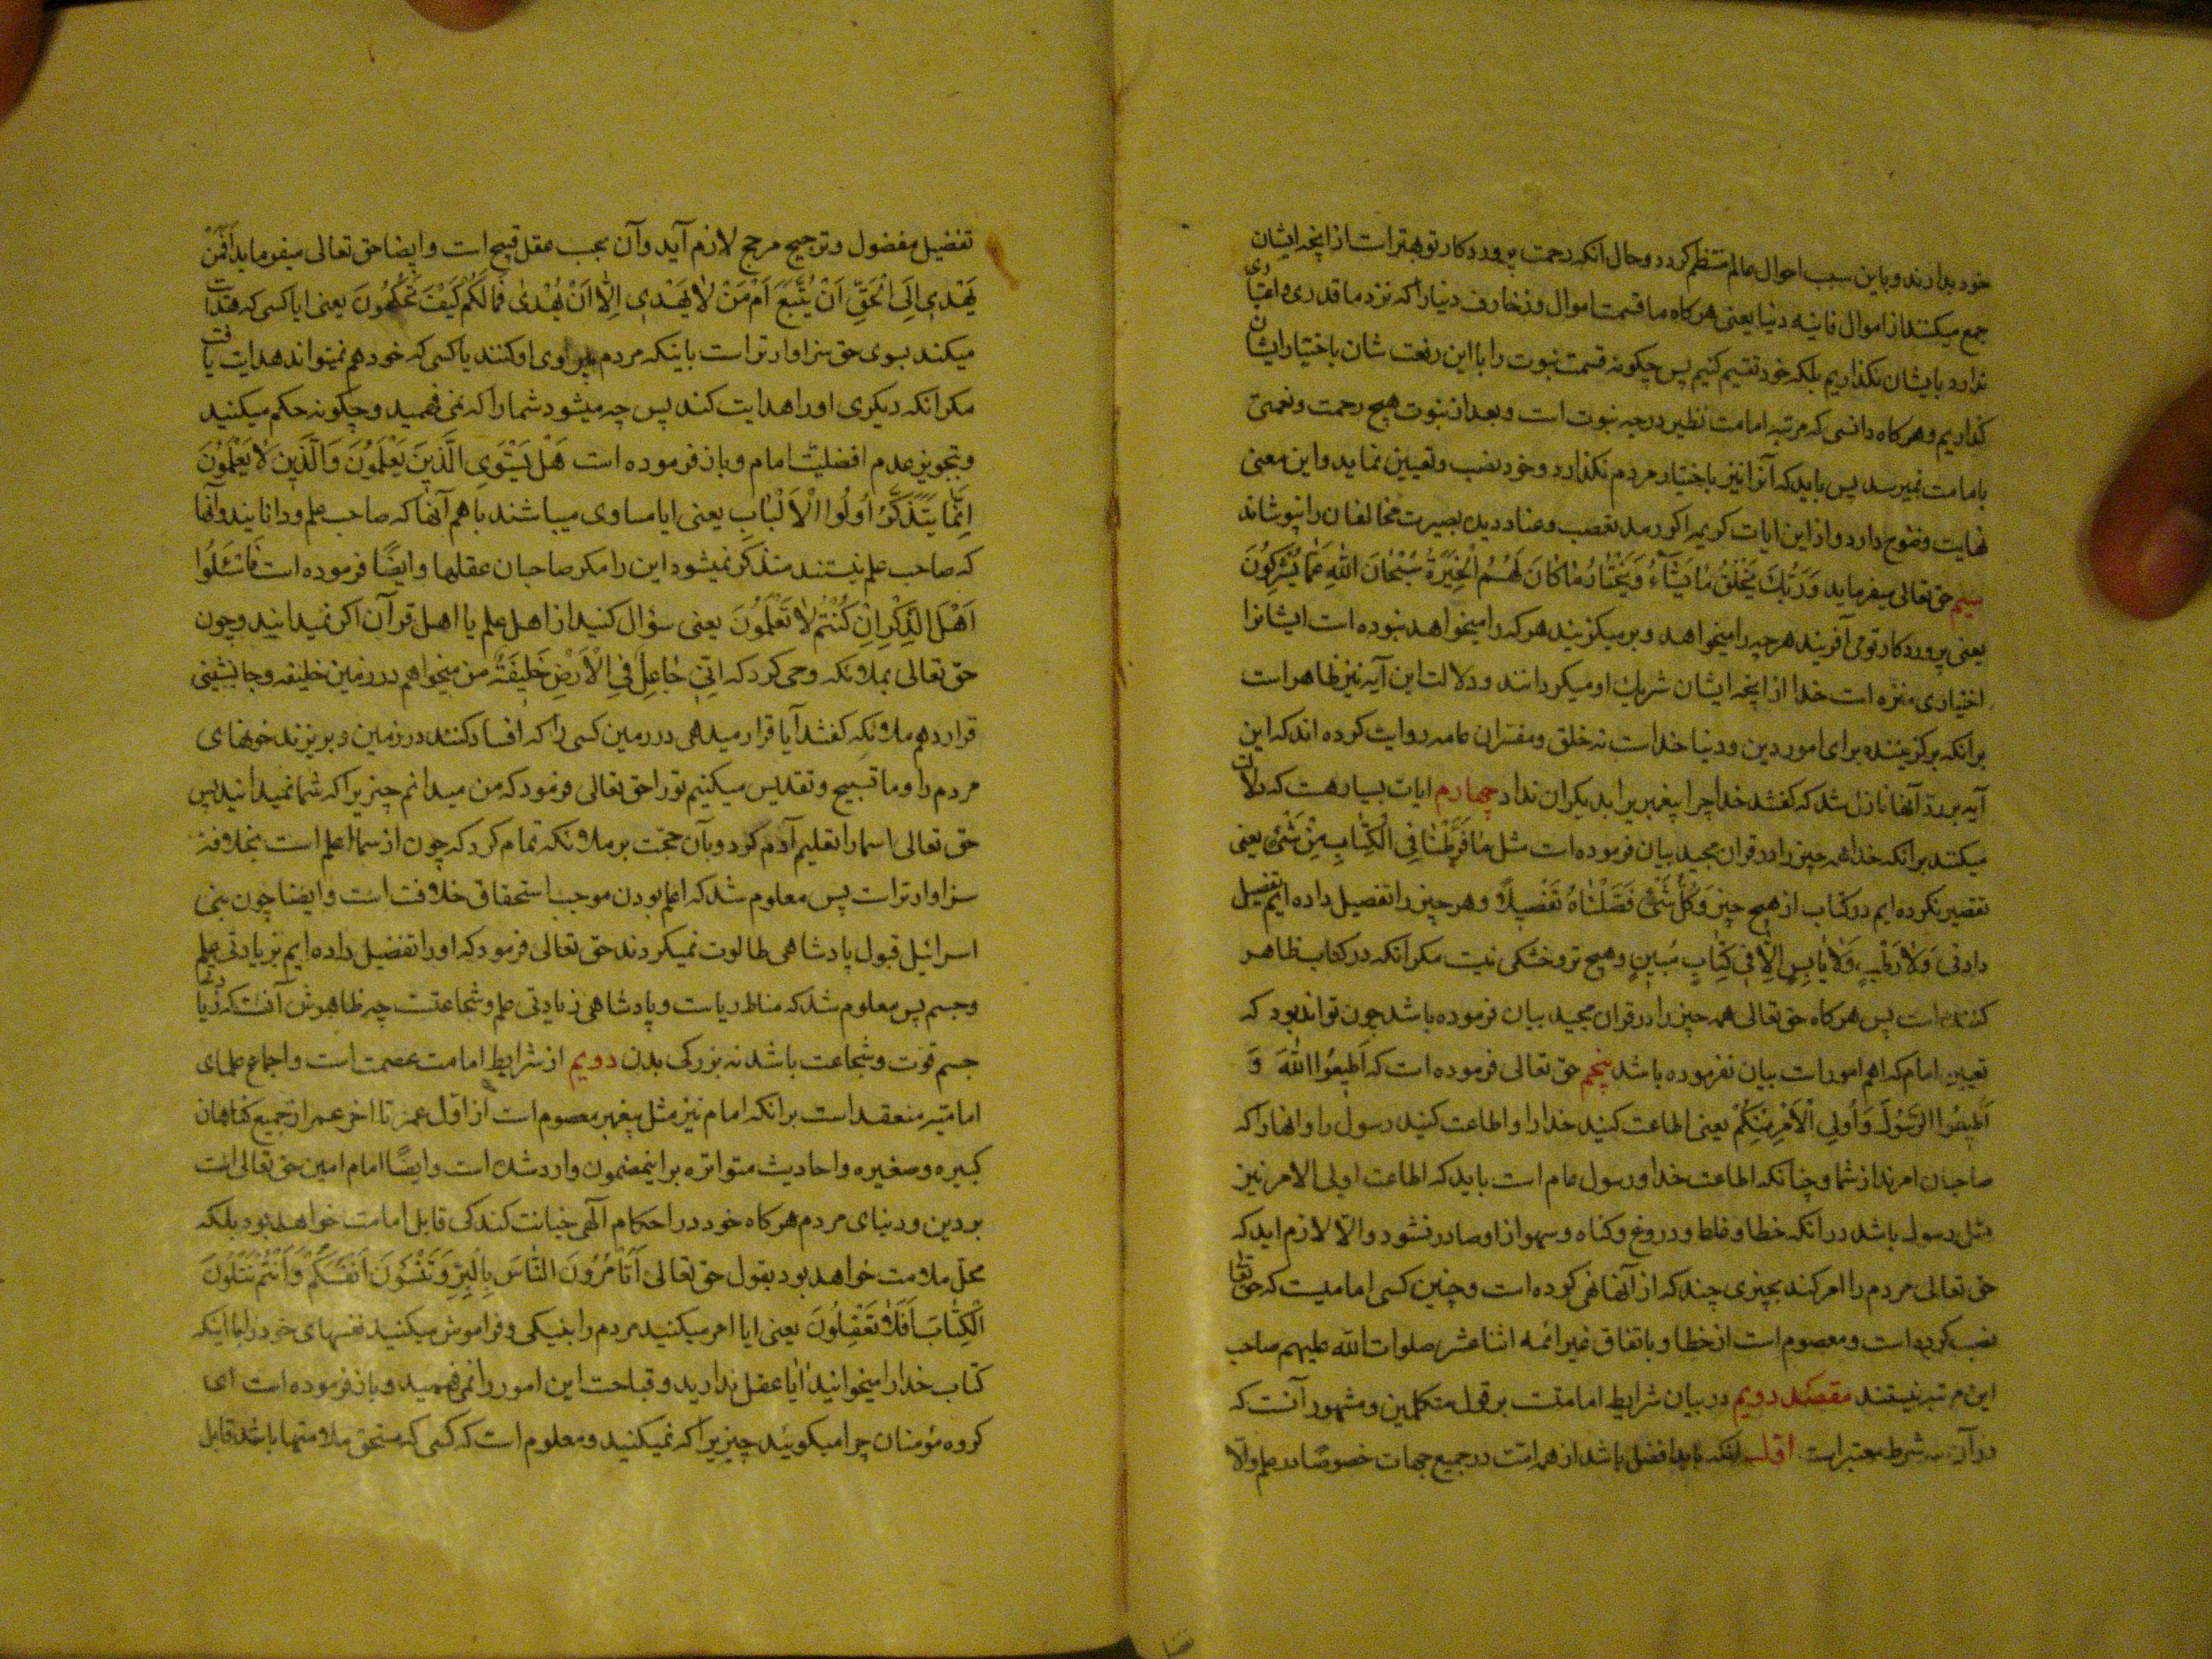 خود بدارند و باین سبب احوال عالم منتظم کردد و حال انکه رحمت پروردکار تو بهتر است از انچه ایشان
جمع میکنند از اموال فانیه دنیا یعنی هرکاه ما قسمت اموال و زخارف دنیا را که نزد ما قدری و اعتباری
ندارد بایشان نکذاریم بلکه خود تقسیم کنیم پس چکونه قسمت نبوت را با این رفعت شان باختیار ایشان
کذاریم و هرکاه دانسی که مرتبه امامت نظیر درجه نبوت است و بعد از نبوت هیچ رحمت و نعمتی
بامامت نمیرسد پس باید که آنرا نیز باختیار مردم نکذارد و خود نصب و تعیین نماید و این معنی
نهایت وضوح دارد و از این ایات کریمه اکر رمد تعصب و عناد دیده بصیرت مخالفان را نپوشاند
سیم حق تعالی میفرماید وَرَبُّكَ يَخْلُقُ مٰا يَشٰٓاءُ وَيَخْتٰارُ مٰا كٰانَ لَهُمُ الْخِيَرَةُ سُبْحٰانَ اللّٰهِ عَمّٰا يُشْرِكُونَ
یعنی پروردکار تو می آفریند هرچه را میخواهد و برمیکزیند هرکه را میخواهد نبوده است ایشانرا
اختیاری منزه است خدا از انچه ایشان شریك او میکردانند و دلالت این آیه نیز ظاهر است
برانکه برکزیننده برای امور دین و دنیا خداست نه خلق و مفسران عامه روایت کرده اند که این
آیه بردّ آنها نازل شد که کفتند خدا چرا پیغمبر یرا بدیکران نداد چهارم ایات بسیار هست که دلالت
میکنند برانکه خدا همه چیز را در قران مجید بیان فرموده است مثل مٰا فَرَّطْنٰا فِي الْكِتٰابِ مِنْ شَيْءٍ یعنی
تقصیر نکرده ایم در کتاب از هیچ چیز وَكُلَّ شَيْءٍ فَصَّلْنٰاهُ تَفْصِيلًا و هر چیز را تفصیل داده ایم تفصیل
دادنی وَلٰا رَطْبٍ وَلٰا يٰابِسٍ اِلّٰا فِي كِتٰابٍ مُبِينٍ و هیچ تر و خشکی نیت مکر انکه در کتاب ظاهر
کننده است پس هرکاه حق تعالی همه چیز را در قران مجید بیان فرموده باشد چون تواند بود که
تعیین امام که اهم امور است بیان نفرموده باشد پنجم حق تعالی فرموده است که اَطِيعُوا اللّٰهَ وَ
اَطِيعُوا الرَّسُولَ وَأُولِي الْأَمْرِ مِنْكُمْ یعنی اطاعت کنید خدا را و اطاعت کنید رسول را و انها را که
صاحبان امرند از شما و چنانکه اطاعت خدا و رسول عام است باید که اطاعت اولی الامر نیز
مثل رسول باشد در انکه خطا و غلط و دروغ و کناه و سهو از او صادر نشود و الّا لازم اید که
حق تعالی مردم را امر کند بچیزی چند که از آنها نهی کرده است و چنین کسی امامیست که حق تعا
نصب کرده است و معصوم است از خطا و باتفاق غیر ائمه اثنا عشر صلوات اللّه علیهم صاحب
این مرتبه نیستند مقصد دویم در بیان شرایط امامتست بر قول متکلمین و مشهور آنست که
در آن سه شرط معتبر است اوّل انکه باید افضل باشد از همه امّت در جمیع جهات خصوصًا در علم و الّا
تفضیل مفضول و ترجیح مرجح لازم آید و آن بحب عقل قبیح است و ایضا حق تعالی میفرماید أَفَمَنْ
يَهْدِي إِلَى الْحَقِّ اَنْ يُتَّبَعَ اَمْ مَنْ لٰا يَهْدِي اِلّٰا اَنْ يُهْدىٰ فَمٰا لَكُمْ كَيْفَ تَحْكُمُونَ یعنی ایا کسی که هدایت
میکند بسوی حق سزاوارتر است باینکه مردم پیروی او کنند یا کسی که خود هم نمیتواند هدایت یافت
مکر انکه دیکری او را هدایت کند پس چه میشود شما را که نمی فهمید و چکونه حکم میکنید
و تجویز عدم افضلیت امام و باز فرموده است هَلْ يَسْتَوِي الَّذِينَ يَعْلَمُونَ وَالَّذِينَ لٰا يَعْلَمُونَ
اِنَّمٰا يَتَذَكَّرُ اُولُوا الْاَلْبٰابِ یعنی ایا مساوی میباشند با هم آنها که صاحب علم و دانایند و آنها
که صاحب علم نیستند متذکر نمیشود این را مکر صاحبان عقلها و ایضًا فرموده است فَاسْئَلُوا
اَهْلَ الذِّكْرِ اِنْ كُنْتُمْ لٰا تَعْلَمُونَ یعنی سؤال کنید از اهل علم یا اهل قرآن اکر نمیدانید و چون
حق تعالی بملائکه وحی کرد که اِنِّي جٰاعِلٌ فِي الْأَرْضِ خَلِيفَةً من میخواهم در زمین خلیفه و جانشینی
قرار دهم ملائکه کفتند آیا قرار میدهی در زمین کسی را که افساد کنند در زمین و بریزند خونهای
مردم را و ما تسبیح و تقدیس میکنیم تو را حق تعالی فرمود که من میدانم چیزیرا که شما نمیدانید پس
حق تعالی اسما را تعلیم آدم کرد و بآن حجّت بر ملائکه تمام کرد که چون از شما اعلم است بخلافت
سزاوارتر است پس معلوم شد که اعلم بودن موجب استحقاق خلافت است و ایضا چون بنی
اسرائیل قبول پادشاهی طالوت نمیکردند حق تعالی فرمود که او را تفضیل داده ایم بزیادتی علم
و جسم پس معلوم شد که مناط ریاست و پادشاهی زیادتی علم و شجاعتست چه ظاهرش آنست که زیادتی
جسم قوّت و شجاعت باشد نه بزرکی بدن دویم از شرایط امامت عصمت است و اجماع علمای
امامیّه منعقد است برانکه امام نیز مثل پیغمبر معصوم است از اوّل عمر تا اخر عمر از جمیع کناهان
کبیره و صغیره و احادیث متواتره بر اینمضمون وارد شده است و ایضًا امام امین حق تعالی است
بر دین و دنیای مردم هرکاه خود در احکام آلهی خیانت کند کی قابل امامت خواهد بود بلکه
محلّ ملامت خواهد بود بقول حق تعالی أَتَأْمُرُونَ النّٰاسَ بِالْبِرِّ وَتَنْسَوْنَ اَنْفُسَكُمْ وَأَنْتُمْ تَتْلُونَ
الْكِتٰابَ اَفَلٰا تَعْقِلُونَ یعنی ایا امر میکنید مردم را بنیکی و فراموش میکنید نفسهای خود را با اینکه
کتاب خدا را میخوانید آیا عقل ندارید و قباحت این امور را نمی فهمید و باز فرموده است ای
کروه مؤمنان چرا میکوئید چیزیرا که نمیکنید و معلوم است که کسی که مستحق ملامتها باشد قابل